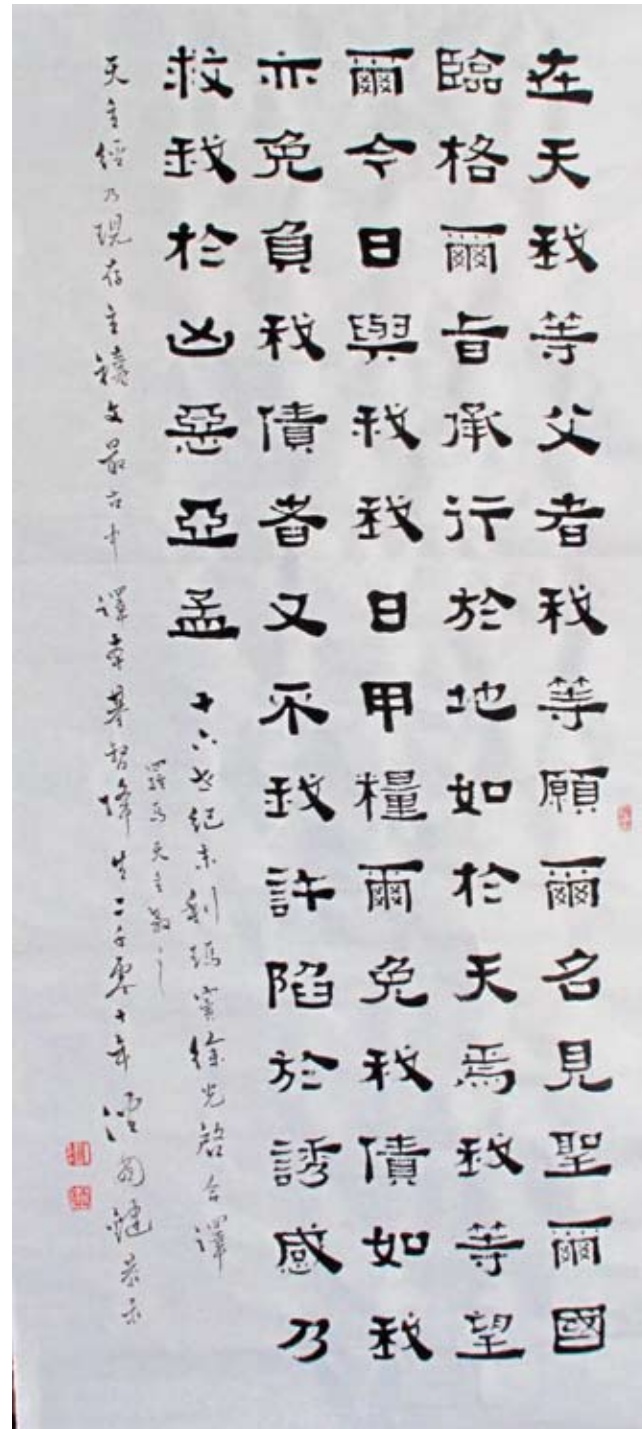 在天我等父者我等願爾名見聖爾國
臨格爾旨承行於地如於天焉我等望
爾今日與我我日甲糧爾免我債如我
亦免負我債者又不我許陷於誘感乃
救我於凶惡亞孟 十六世紀末利瑪竇徐光啓合譯
羅馬天主教之
天主經乃現存主禱文最古中譯本基督降生二千零十年 潘國鍵恭